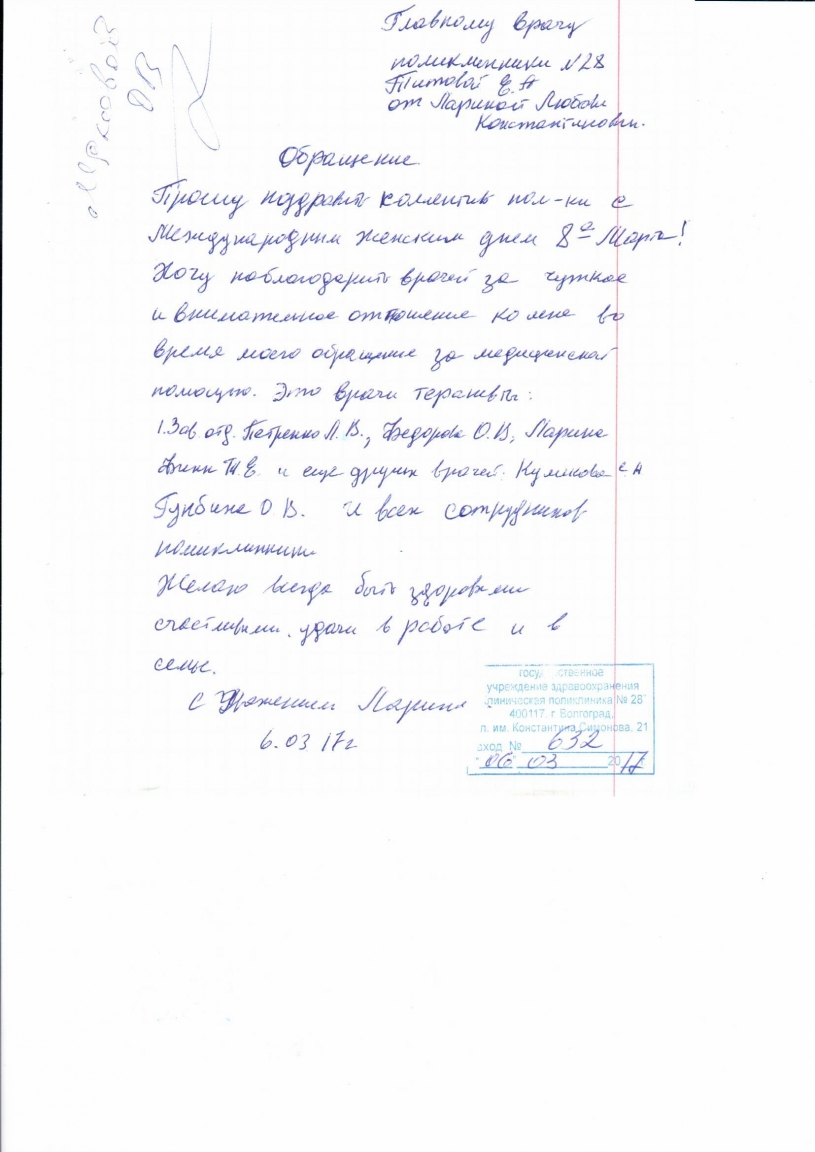 Главному врачу
поликлинники №28
Титовой Е.А
от Лариной Любови
Константиновны.
ОВ
Обращение.
Прошу поздравить коллектив пол-ки с
Международным женским днем 8го Марта!
Хочу поблагодарить врачей за чуткое
и внимательное отношение ко мне во
время моего обращение за медицинской
помощью. Это врачи терапевты:
1.Зав. отд. Петренко Л.В., Федорова О.В, Ларина
Т.Е. и еще других врачей: Куликова Е.А
Гунбина О.В. и всех сотрудников
поликлинники
Желаю всегда быть здоровыми
счастливыми, удачи в работе и в
семье.
С Уважением Ларина
6.03 17г
государственное
учреждение здравоохранения
"Клиническая поликлиника № 28"
400117, г. Волгоград,
ул. им. Константина Симонова, 21
вход. № 632
"06" 03 2017